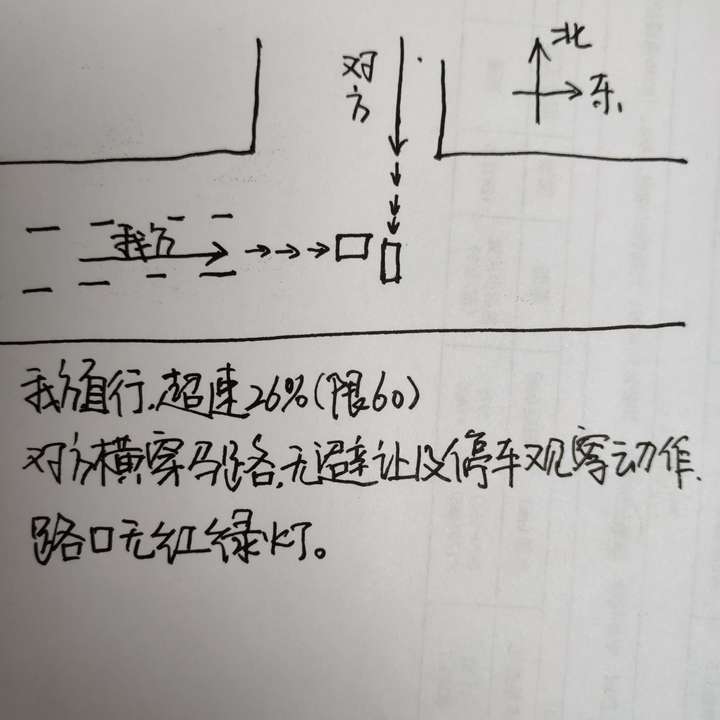 北
东
对方
我方
我方直行.超速26%(限60)
对方横穿马路.无避让及停车观察动作.
路口无红绿灯。